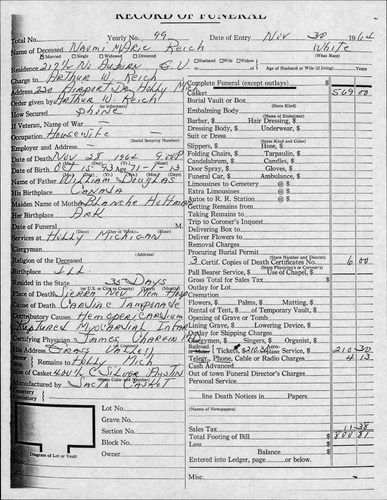 RECORD OF FUNERAL
Total No. Yearly No. 99 Date of Entry Nov 30 1964
Name of Deceased Naomi Marie Reich White
Married Single Widowed Divorced (What Race)
Residence 219½ N. Auburn G.V. Husband Wife Widow of Age of Husband or Wife (if living) Years
Charge to Arthur W. Reich Complete Funeral (except outlays) $
Address 330 Airport Dr. Holly Mich Casket 569 00
Order given by Arthur W. Reich Burial Vault or Box
(or informant) (State Kind)
How Secured phone Embalming Body
(Name of Embalmer)
If Veteran, Name of War — Barber, $ Hair Dressing, $
Occupation Housewife Dressing Body, $ Underwear, $
(Social Security Number) Suit or Dress
(State Kind and Color)
Employer and Address — Slippers, $ Hose, $
Folding Chairs, $ Tarpaulin, $
Date of Death Nov 28 1964 9:00 P.M. Candelabrum, $ Candles, $
Date of Birth Oct 15 93 Age 71-1-13 Door Spray, $ Gloves, $
Name of Father William Douglas Funeral Car, $ Ambulance, $
His Birthplace Canada Limousines to Cemetery @ $
Extra Limousines @ $
Maiden Name of Mother Blanche Autos to R. R. Station @ $
Her Birthplace Ark Getting Remains from
Taking Remains to
Date of Funeral M Trip to Coroner's Inquest
Services at Holly Michigan Delivering Box to
Deliver Flowers to
Clergyman Removal Charges
(Address) Procuring Burial Permit
(State Number and District)
Religion of the Deceased 3 Certif. Copies of Death Certificates No. 6 00
(State Physician's or Coroner's)
Birthplace Ill Pall Bearer Service, $ Use of Chapel, $
Resided in the State 35 Days Gross Total for Sales Tax $
Outlay for Lot
Place of Death Sierra Nev Mem Hosp Cremation
Cause of Death Cardiac Tamponade Flowers, $ Palms, $ Matting, $
Rental of Tent, $ of Temporary Vault, $
Contributory Causes Hemopericardium Opening of Grave or Tomb
Ruptured Myocardial Lining Grave, $ Lowering Device, $
Outlay for Shipping Charges
Certifying Physician James Clergymen, $ Singers, $ Organist, $
His Address Grass Valley Tickets, Aeroplane Service, $ 210 30
Remains to Holly Mich Telegr., Phone, Cable or Radio Charges 4 13
Cash Advanced
Size of Casket Silver Out of town Funeral Director's Charges
(State Color and Number)
Manufactured by Casket Personal Service
Cemetery
Crematory line Death Notices in Papers
(Names of Newspapers)
Lot No.
Grave No.
Section No. Sales Tax 11-38
Block No. Total Footing of Bill $ 800 81
Less
Owner Balance $
Diagram of Lot or Vault Entered into Ledger, page or below.
Misc.